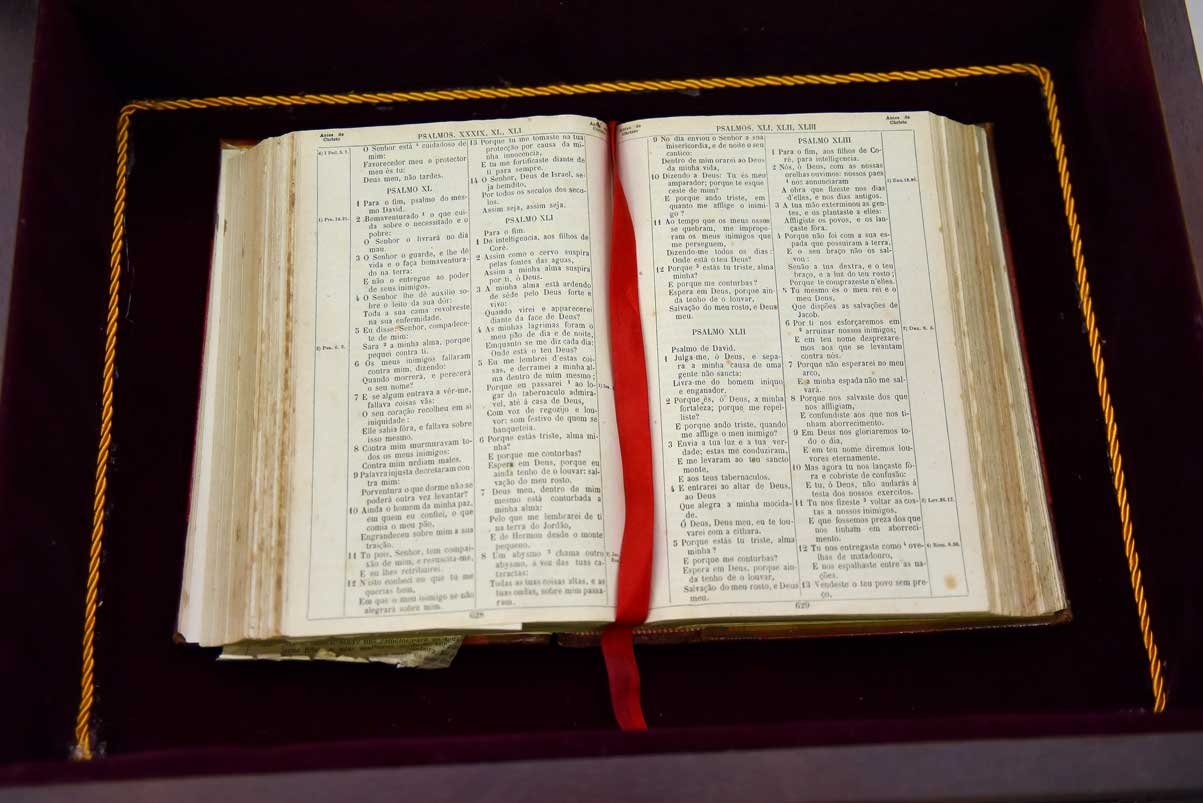 Antes de
Christo
PSALMOS, XXXIX, XL, XLI
Antes de
Christo
O Senhor está ¹ cuidadoso de
mim:
Favorecedor meu e protector
meu és tu:
Deus meu, não tardes.
PSALMO XL
1 Para o fim, psalmo do mes-
mo David.
2 Bemaventurado ¹ o que cui-
da sobre o necessitado e o
pobre:
O Senhor o livrará no dia
mau.
3 O Senhor o guarde, e lhe dê
vida e o faça bemaventura-
do na terra:
E não o entregue ao poder
de seus inimigos.
4 O Senhor lhe dê auxilio so-
bre o leito da sua dôr:
Toda a sua cama revolveste
na sua enfermidade.
5 Eu disse: Senhor, compadece-
te de mim:
Sara ² a minha alma, porque
pequei contra ti.
6 Os meus inimigos fallaram
contra mim, dizendo:
Quando morrerá, e perecerá
o seu nome?
7 E se algum entrava a vêr-me,
fallava coisas vãs:
O seu coração recolheu em si
iniquidade:
Elle sahia fóra, e fallava sobre
isso mesmo.
8 Contra mim murmuravam to-
dos os meus inimigos:
Contra mim urdiam males.
9 Palavra injusta decretaram con-
tra mim:
Porventura o que dorme não se
poderá outra vez levantar?
10 Ainda o homem da minha paz,
em quem eu confiei, o que
comia o meu pão,
Engrandeceu sobre mim a sua
traição.
11 Tu pois, Senhor, tem compai-
xão de mim, e resuscita-me,
E eu lhes retribuirei.
12 N'isto conheci eu que tu me
querias bem,
Em que o meu inimigo se não
alegrará sobre mim.
13 Porque tu me tomaste na tua
protecção por causa da mi-
nha innocencia,
E tu me fortificaste diante de
ti para sempre.
14 O Senhor, Deus de Israel, se-
ja bemdito,
Por todos os seculos dos secu-
los.
Assim seja, assim seja.
PSALMO XLI
Para o fim.
1 De intelligencia, aos filhos de
Coré.
2 Assim como o cervo suspira
pelas fontes das aguas,
Assim a minha alma suspira
por ti, ó Deus.
3 A minha alma está ardendo
de sêde pelo Deus forte e
vivo:
Quando virei e apparecerei
diante da face de Deus?
4 As minhas lagrimas foram o
meu pão de dia e de noite,
Emquanto se me diz cada dia:
Onde está o teu Deus?
5 Eu me lembrei d'estas coi-
sas, e derramei a minha al-
ma dentro de mim mesmo;
Porque eu passarei ¹ ao lo-
gar do tabernaculo admira-
vel, até á casa de Deus,
Com voz de regozijo e lou-
vor: som festivo de quem se
banqueteia.
6 Porque estás triste, alma mi-
nha?
E porque me conturbas?
Espera em Deus, porque eu
ainda tenho de o louvar: sal-
vação do meu rosto.
7 Deus meu, dentro de mim
mesmo está conturbada a
minha alma:
Pelo que me lembrarei de ti
na terra do Jordão,
E de Hermon desde o monte
pequeno.
8 Um abysmo ² chama outro
abysmo, á voz das tuas ca-
taractas:
Todas as tuas coisas altas, e as
tuas ondas, sobre mim passa-
ram.
628
Antes de
Christo
PSALMOS, XLI, XLII, XLIII
Antes de
Christo
9 No dia enviou o Senhor a sua
misericordia, e de noite o seu
cantico:
Dentro de mim orarei ao Deus
da minha vida,
10 Dizendo a Deus: Tu és meu
amparador; porque te esque
ceste de mim?
E porque ando triste, em
quanto me afflige o inimi-
go?
11 Ao tempo que os meus ossos
se quebram, me imprope-
ram os meus inimigos que
me perseguem,
Dizendo-me todos os dias:
Onde está o teu Deus?
12 Porque ³ estás tu triste, alma
minha?
E porque me conturbas?
Espera em Deus, porque ain-
da tenho de o louvar,
Salvação do meu rosto, e Deus
meu.
PSALMO XLII
Psalmo de David.
1 Julga-me, ó Deus, e sepa-
ra a minha causa de uma
gente não sancta:
Livra-me do homem iniquo
e enganador.
2 Porque és, ó Deus, a minha
fortaleza; porque me repel-
liste?
E porque ando triste, quando
me afflige o meu inimigo?
3 Envia a tua luz e a tua ver-
dade; estas me conduziram,
E me levaram ao teu sancto
monte,
E aos teus tabernaculos.
4 E entrarei ao altar de Deus,
ao Deus
Que alegra a minha mocida-
de.
Ó Deus, Deus meu, eu te lou-
varei com a cithara.
5 Porque estás tu triste, alma
minha?
E porque me conturbas?
Espera em Deus, porque ain-
da tenho de o louvar,
Salvação do meu rosto, e Deus
meu.
PSALMO XLIII
1 Para o fim, aos filhos de Co-
ré, para intelligencia.
2 Nós, ó Deus, com as nossas
orelhas ouvimos: nossos paes
¹ nos annunciaram
A obra que fizeste nos dias
d'elles, e nos dias antigos.
3 A tua mão exterminou as gen-
tes, e os plantaste a elles:
Affligiste os povos, e os lan-
çaste fóra.
4 Porque não foi com a sua es-
pada que possuiram a terra,
E o seu braço não os sal-
vou:
Senão a tua dextra, e o teu
braço, e a luz do teu rosto;
Porque te comprazeste n'elles.
5 Tu mesmo és o meu rei e o
meu Deus,
Que dispões as salvações de
Jacob.
6 Por ti nos esforçaremos em
² arruinar nossos inimigos;
E em teu nome desprezare-
mos aos que se levantam
contra nós.
7 Porque não esperarei no meu
arco,
E a minha espada não me sal-
vará.
8 Porque nos salvaste dos que
nos affligiam,
E confundiste aos que nos ti-
nham aborrecimento.
9 Em Deus nos gloriaremos to-
do o dia,
E em teu nome diremos lou-
vores eternamente.
10 Mas agora tu nos lançaste fó-
ra e cobriste de confusão:
E tu, ó Deus, não andarás á
testa dos nossos exercitos.
11 Tu nos fizeste ³ voltar as cos-
tas a nossos inimigos,
E que fossemos preza dos que
nos tinham em aborreci-
mento.
12 Tu nos entregaste como ⁴ ove-
lhas de matadouro,
E nos espalhaste entre as na-
ções.
13 Vendeste o teu povo sem pre-
ço,
629